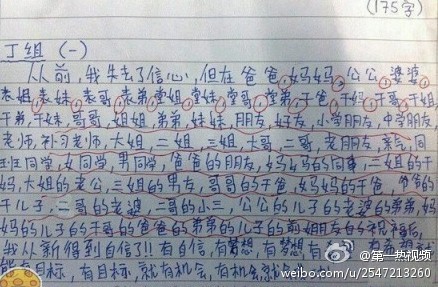 (175字)
丁组 (一)
从前，我失去了信心，但在爸爸，妈妈，公公，婆婆
表姐，表妹，表哥，表弟，堂姐，堂妹，堂哥，堂弟，干爸，干妈，干哥，干姐
干弟，干妹，哥哥，姐姐，弟弟，妹妹，朋友，好友，小学朋友，中学朋友
老师，补习老师，大姐，二姐，三姐，大哥，二哥，老朋友，亲气，同
班同学，女同学，男同学，爸爸的朋友，妈妈的同事，二姐的干
妈，大姐的老公，三姐的男友，哥哥的干爸，妈妈的干爸，爸爸的
干儿子，二哥的老婆，二哥的小三，公公的儿子的老婆的弟弟，妈
妈的儿子的干哥的爸爸的弟弟的儿子的前姐友的祝福后，
我从新得到自信了!!有自信，有梦想，有梦想，有
有目标，有目标，就有机会，有机会
@第一热视频
weibo.com/u/2547213260